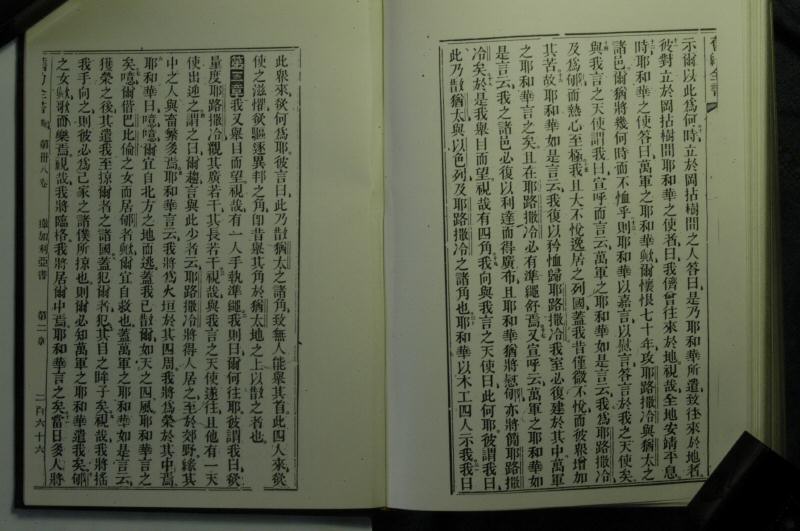 舊約全書
示爾以此爲何時立於岡拈樹間之人答曰是乃耶和華所遣致往來於地者
彼對立於岡拈樹間耶和華之使者曰我儕曾往來於地視哉全地安靖平息
時耶和華之使答曰萬軍之耶和華歟爾懷恨七十年攻耶路撒冷與猶太之
諸邑爾猶將幾何時而不恤乎則耶和華以嘉言以慰言答言於我之天使矣
與我言之天使謂我曰宣呼而言云萬軍之耶和華如是言云我爲耶路撒冷
及爲郇而熱心至極我且大不悅逸居之列國蓋我昔僅微不悅而彼輩增加
其苦故耶和華如是言云我復以矜恤歸耶路撒冷我室必復建於其中萬軍
之耶和華言之矣且在耶路撒冷必有準繩舒焉又宣呼云萬軍之耶和華如
是言云我之諸邑必復以利達而得廣布且耶和華猶將慰郇亦將簡耶路撒
冷矣於是我舉目而望視哉有四角我向與我言之天使曰此何耶彼謂我曰
此乃散猶太與以色列及耶路撒冷之諸角也耶和華以木工四人示我我曰
此輩來欲何爲耶彼言曰此乃散猶太之諸角致無人能舉其首此四人來欲
使之滋懼欲驅逐異邦之角卽昔舉其角於猶太地之上以散之者也
第二章我又舉目而望視哉有一人手執準繩我則曰爾何往耶彼謂我曰欲
量度耶路撒冷觀其廣若干其長若干視哉與我言之天使遂往且他有一天
使出迎之謂之曰爾趨言與此少者云耶路撒冷將得人居之至於郊野緣其
中之人與畜繁多焉耶和華言云我將爲火垣於其四周我將爲榮於其中焉
耶和華曰噫噫爾宜自北方之地而逃蓋我已散爾如天之四風耶和華言之
矣噫爾偕巴比倫之女而居郇者歟爾宜自救也蓋萬軍之耶和華如是言云
獲榮之後其遣我至掠爾者之諸國蓋犯爾者犯其目之眸子矣視哉我將搖
我手向之則彼必爲己家之諸僕所掠也則爾必知萬軍之耶和華遣我矣郇
之女歟歌而樂焉視哉我將臨格我將居爾中焉耶和華言之矣當日多人將
第卅八卷 撒加利亞書 第二章 二百六十六